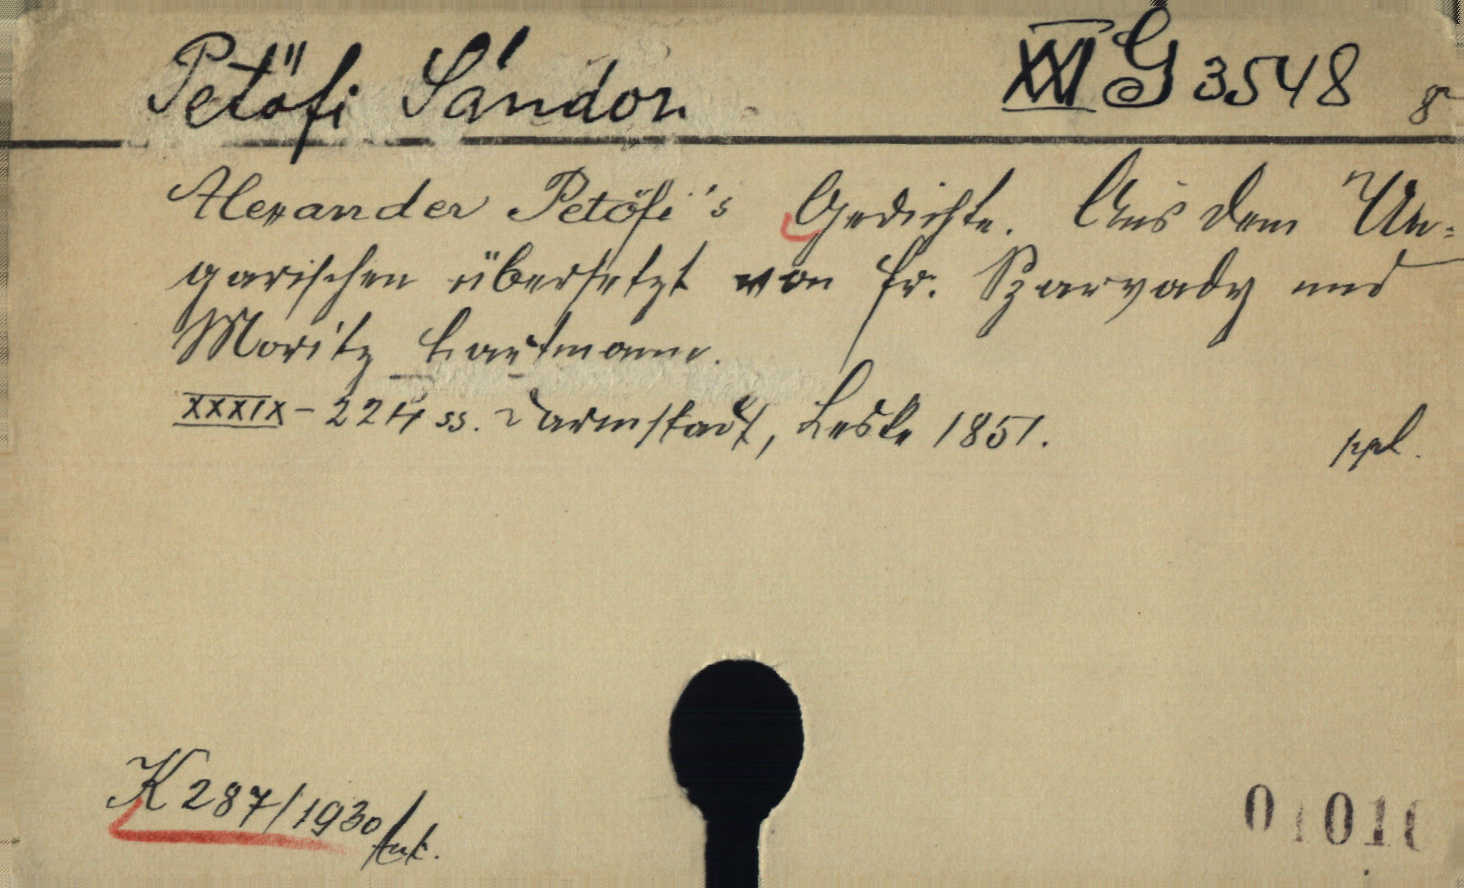 Petőfi Sándor
XVI G 3548 8r
Alexander Petőfi's Gedichte. Aus dem Un-
garischen übersetzt von Fr. Szarvady und
Moritz Hartmann.
XXXIX-224 ss. Darmstadt, Leske 1851.
ppl.
K 287/1930